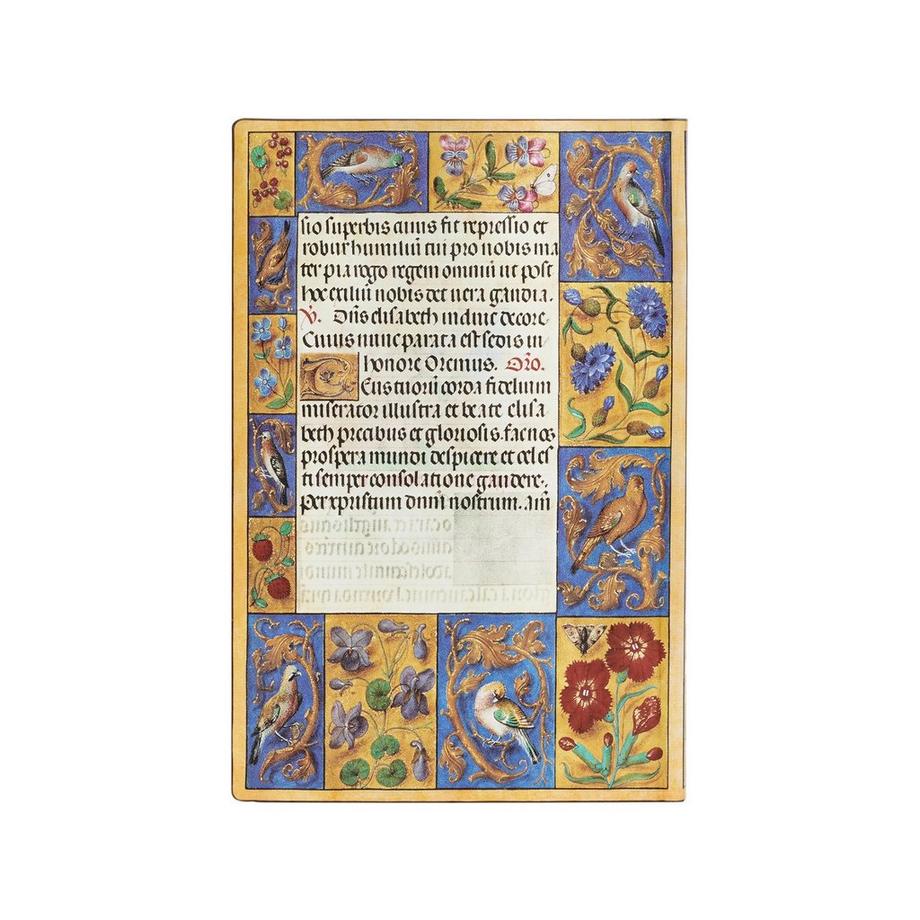 sio superbis auus fit repressio et
robur humiliū tui pro nobis ma
ter pia rogo regem omniū ut post
hoc exiliū nobis det uera gaudia.
V. Dñs elisabeth induit decore.
Cuius nunc parata est sedis in
honore Oremus. Oro.
Eus tuorū corda fidelium
miserator illustra et beate elisa
beth precibus et gloriosis. fac nos
prospera mundi despicere et celes
ti semper consolatione gaudere.
Per xpristum dnm̄ nostrum. am̄